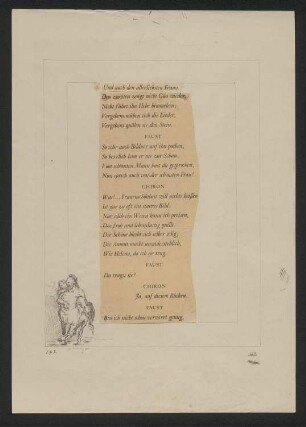 Und auch den allerliebsten Frauen.
Den zweiten singt nicht Gäa wieder,
Nicht führt ihn Hebe himmelein;
Vergebens mühen sich die Lieder,
Vergebens quälen sie den Stein.
FAUST
So sehr auch Bildner auf ihn pochen,
So herrlich kam er nie zur Schau.
Vom schönsten Mann hast du gesprochen,
Nun sprich auch von der schönsten Frau!
CHIRON
Was!... Frauenschönheit will nichts heißen,
Ist gar zu oft ein starres Bild;
Nur solch ein Wesen kann ich preisen,
Das froh und lebenslustig quillt.
Die Schöne bleibt sich selber selig;
Die Anmut macht unwiderstehlich,
Wie Helena, da ich sie trug.
FAUST
Du trugst sie?
CHIRON
Ja, auf diesem Rücken.
FAUST
Bin ich nicht schon verwirrt genug,